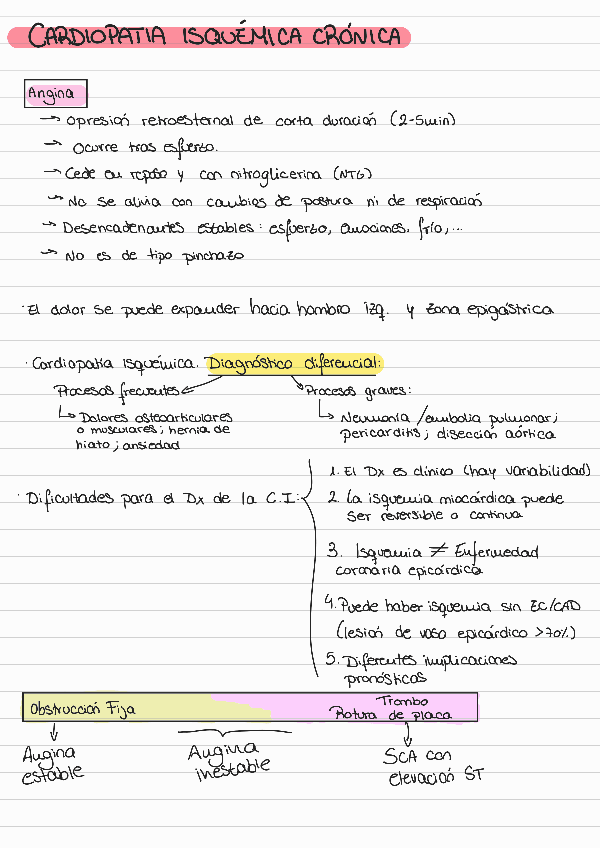 CARDIOPATIA ISQUÉMICA CRÓNICA
Angina
→ Opresión retroesternal de corta duración (2-5min)
→ Ocurre tras esfuerzo.
→ Cede en reposo y con nitroglicerina (NTG)
→ No se alivia con cambios de postura ni de respiración
→ Desencadenantes estables: esfuerzo, emociones, frío,...
→ No es de tipo pinchazo
· El dolor se puede expander hacia hombro izq. y zona epigástrica
· Cardiopatía isquémica. Diagnóstico diferencial:
Procesos frecuentes
↳ Dolores osteoarticulares
o musculares; hernia de
hiato; ansiedad
Procesos graves:
↳ Neumonía/embolia pulmonar;
pericarditis; disección aórtica
· Dificultades para el Dx de la C.I:
1. El Dx es clínico (hay variabilidad)
2. La isquemia miocárdica puede
ser reversible o continua
3. Isquemia ≠ Enfermedad
coronaria epicárdica
4. Puede haber isquemia sin EC/CAD
(lesión de vaso epicárdico >70%)
5. Diferentes implicaciones
pronósticas
Obstrucción Fija
Trombo
Rotura de placa
Angina
estable
Angina
inestable
SCA con
elevación ST